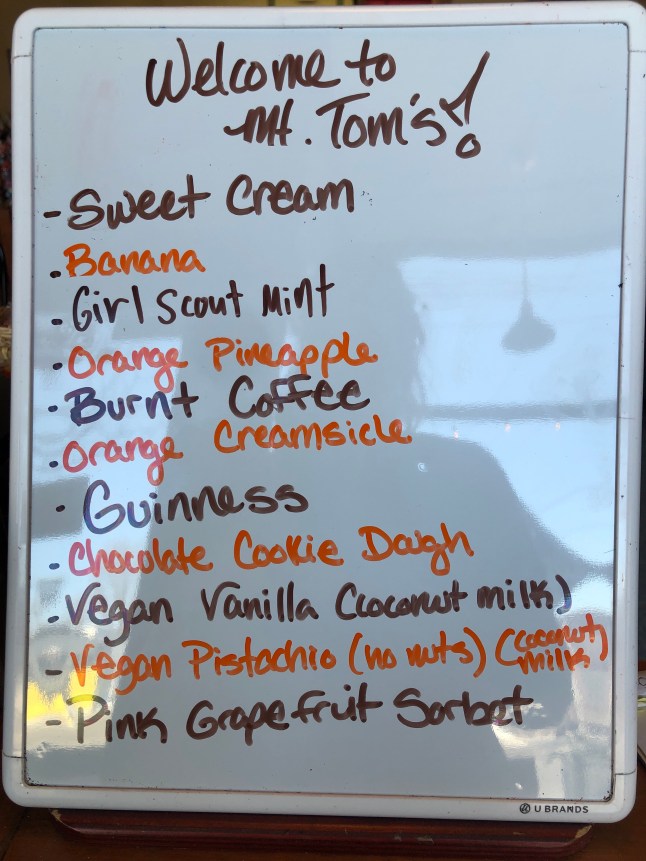 Welcome to
Mt. Tom's!
- Sweet Cream
. Banana
. Girl Scout Mint
. Orange Pineapple
. Burnt Coffee
. Orange Creamsicle
. Guinness
. Chocolate Cookie Dough
. Vegan Vanilla (coconut milk)
- Vegan Pistachio (no nuts) (coconut
milk)
- Pink Grapefruit Sorbet
U BRANDS